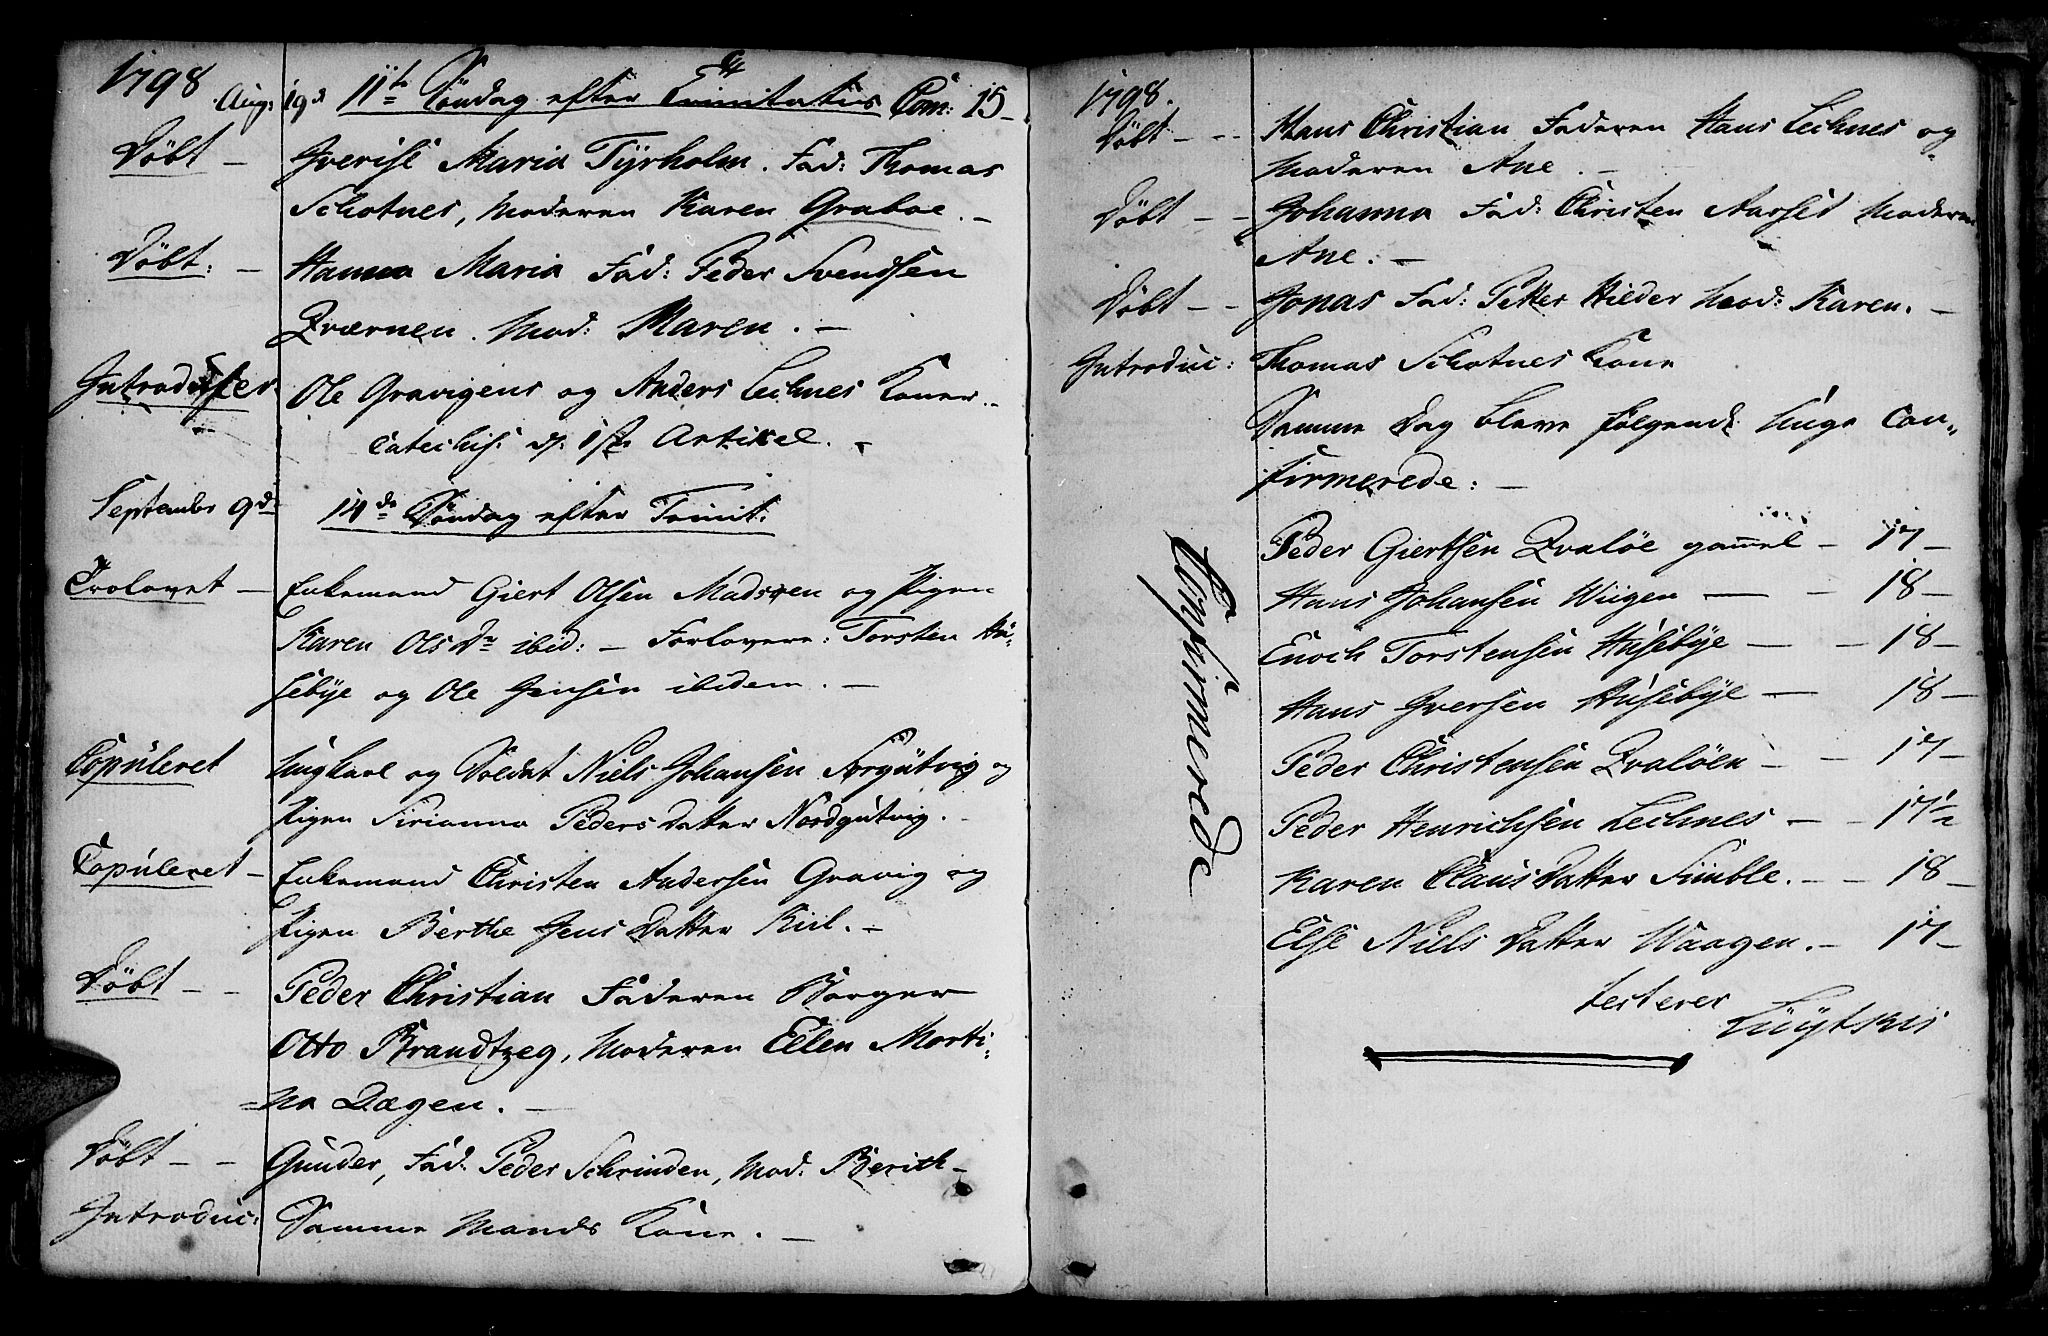 1798
Aug: 19d 11te Söndag efter Trinitatis Com: 15 -
Döbt - Iverise Maria Tyrholm. Fad: Thomas
Schotnes, Moderen Karen Graboe. -
Döbt: - Hanna Maria Fad: Peder Svendsen
Qværnen. Mod: Maren. -
Introducter. Ole Gravigens og Anders Lechnes Koner. -
Catechis: 1ste Artikel. -
September 9de 14de Söndag efter Trinit:
Trolovet - Enkemand Giert Olsen Madsöen og Pigen
Karen Olsdr ibid: - Forlovere: Torsten Hu-
sebye og Ole Jensen ibidem. -
Copuleret Ungkarl og Soldat Niels Johansen Sørgutvig og
Pigen Sirianna Peders Datter Nordgutvig. -
Copuleret - Enkemand Christen Andersen Gravig og
Pigen Berthe Jens Datter Kiil. -
Döbt - - Peder Christian Faderen Borger
Otto Brandtzeg, Moderen Ellen Marti-
na Dægen. -
Döbt - - Gunder, Fad: Peder Schrinden, Mod: Berith -
Introduc: Samme Mands Kone. -
1798.
Döbt - - Hans Christian Faderen Hans Lechnes og
Moderen Ane. -
Döbt - - Johanna Fad: Christen Aarset Moderen
Ane. -
Döbt - - Jonas Fad: Petter Hilder Mod: Karen. -
Introduc: Thomas Schotnes Kone
Samme Dag bleve følgende Unge Con-
firmerede: -
Confirmerede
Peder Giertsen Qvaløe gammel - 17 -
Hans Johansen Wiigen - - 18 -
Enoch Torstensen Husebye - - 18 -
Hans Iversen Husebye - 18 -
Peder Christensen Qvaløen - - 17 -
Peder Henrichsen Lechnes - - 17 1/2
Karen Claus Datter Sumble. - - 18 -
Else Niels Datter Waagen. - 17 -
testerer